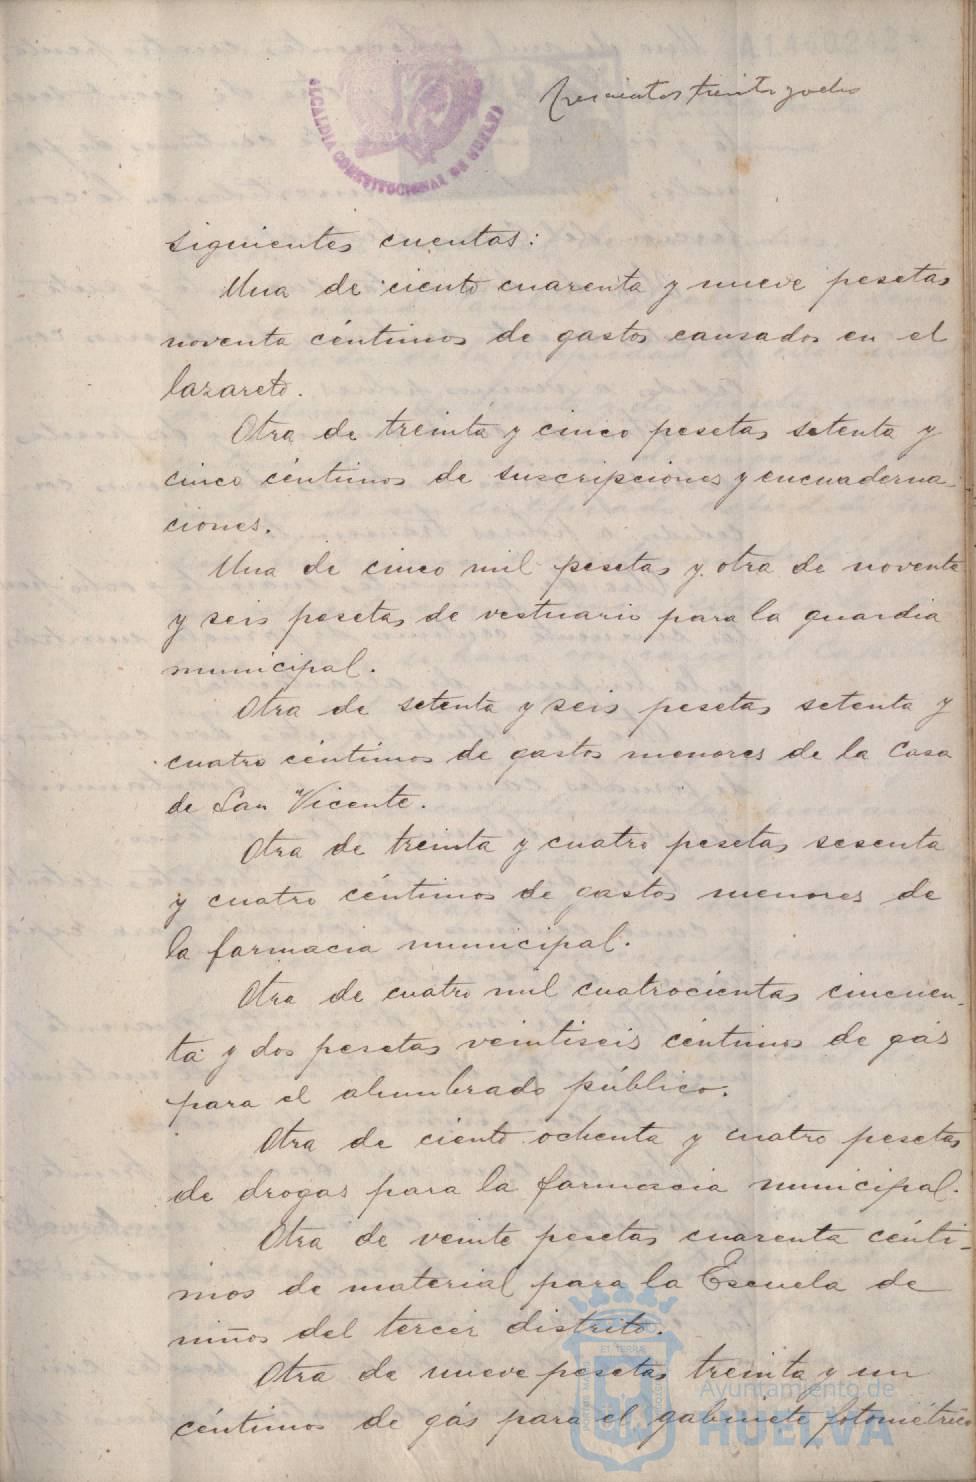 Trescientos treinta y ocho
ALCALDIA CONSTITUCIONAL DE HUELVA
siguientes cuentas:
Una de ciento cuarenta y nueve pesetas
noventa céntimos de gastos causados en el
lazareto.
Otra de treinta y cinco pesetas setenta y
cinco céntimos de suscripciones y encuaderna-
ciones.
Una de cinco mil pesetas y otra de noventa
y seis pesetas de vestuario para la guardia
municipal.
Otra de setenta y seis pesetas setenta y
cuatro céntimos de gastos menores de la Casa
de San Vicente.
Otra de treinta y cuatro pesetas sesenta
y cuatro céntimos de gastos menores de
la farmacia municipal.
Otra de cuatro mil cuatrocientas cincuen-
ta y dos pesetas veintiseis céntimos de gás
para el alumbrado público.
Otra de ciento ochenta y cuatro pesetas
de drogas para la farmacia municipal.
Otra de veinte pesetas cuarenta cénti-
mos de material para la Escuela de
niños del tercer distrito.
Otra de nueve pesetas treinta y un
céntimos de gás para el gabinete fotométrico
Ayuntamiento de
HUELVA